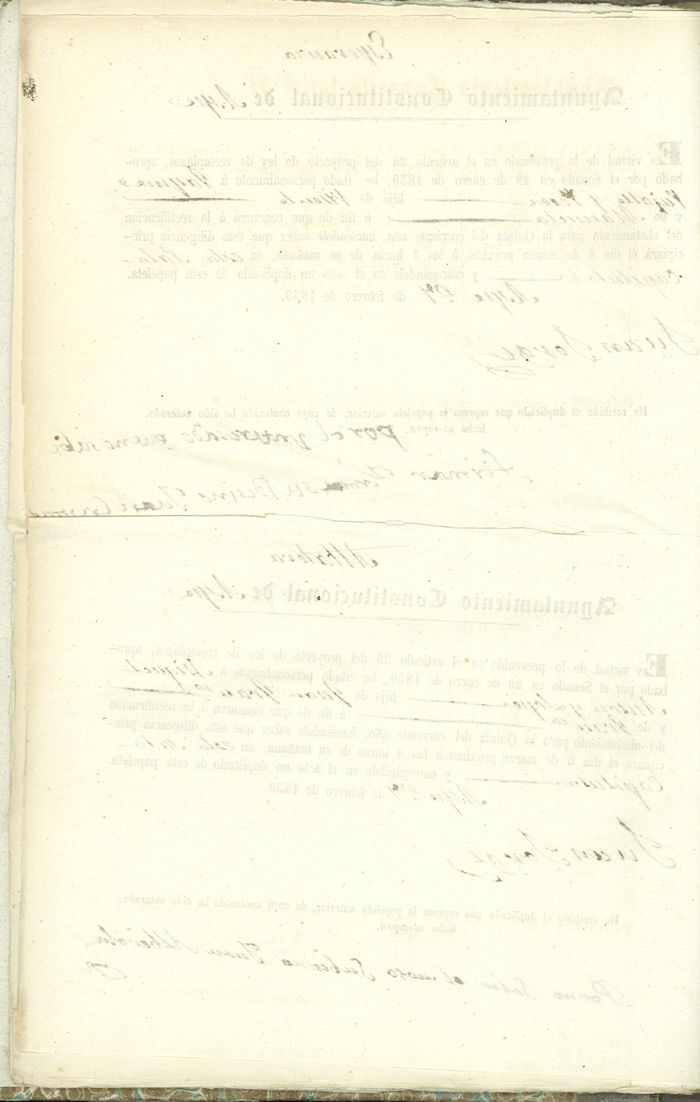 Esperanza
Ayuntamiento Constitucional de Aspe
En virtud de lo prevenido en el artículo 26 del proyecto de ley de remplazos, apro-
bado por el Senado en 29 de enero de 1839, he citado personalmente á
hijo de Vicente
y de Manuela á fin de que concurra á la rectificacion
del alistamiento para la Quinta del corriente año, haciéndole saber que ésta diligencia prin-
cipiará el dia 6 de marzo próximo á las 9 horas de su mañana, en esta Sala
Capitular y entregándole en el acto un duplicado de esta papeleta.
Aspe 27 de febrero de 1839.
Juan Jorge
He recibido el duplicado que espresa la papeleta anterior, de cuyo contenido he sido enterado.
fecha ut-supra.
por el interesado que no sabe
firmar su Vecino Juan
Ayuntamiento Constitucional de Aspe
En virtud de lo prevenido en el artículo 26 del proyecto de ley de remplazos, apro-
bado por el Senado en 29 de enero de 1839, he citado personalmente á Miguel
hijo de Juan
y de á fin de que concurra á la rectificacion
del alistamiento para la Quinta del corriente año, haciéndole saber que ésta diligencia prin-
cipiará el dia 6 de marzo próximo á las 9 horas de su mañana, en esta Sala
Capitular y entregándole en el acto un duplicado de esta papeleta.
Aspe 27 de febrero de 1839.
Juan Jorge
He recibido el duplicado que espresa la papeleta anterior, de cuyo contenido he sido enterado.
fecha ut-supra.
Por no Saber el mozo Su Vecino Juan